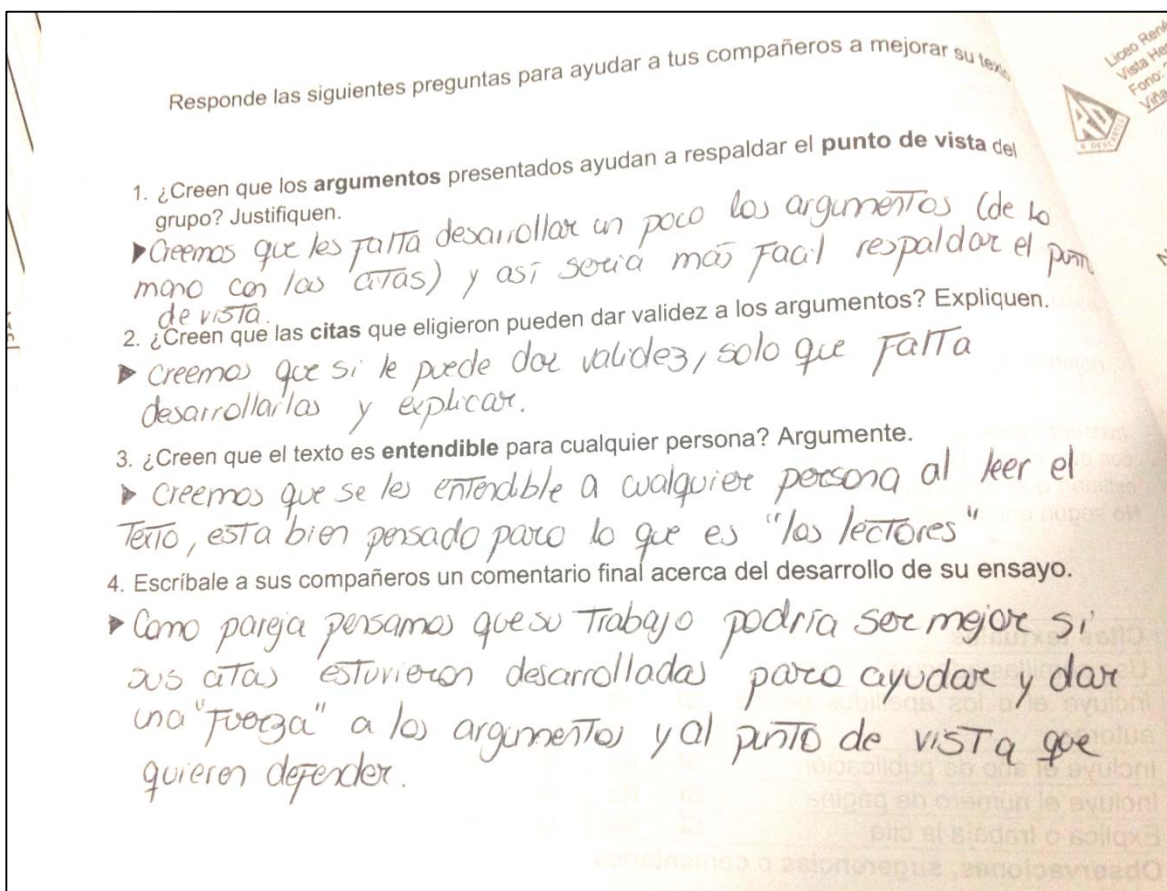 Responde las siguientes preguntas para ayudar a tus compañeros a mejorar su texto
Liceo René
Vista He
Fono:
Viña
R. DESCARTES
1. ¿Creen que los argumentos presentados ayudan a respaldar el punto de vista del
grupo? Justifiquen.
Creemos que les falta desarrollar un poco los argumentos (de la
mano con las citas) y así seria más facil respaldar el punto
de vista.
2. ¿Creen que las citas que eligieron pueden dar validez a los argumentos? Expliquen.
Creemos que si le puede dar validez, solo que falta
desarrollarlas y explicar.
3. ¿Creen que el texto es entendible para cualquier persona? Argumente.
Creemos que se les entendible a cualquier persona al leer el
texto, esta bien pensado para lo que es "los lectores"
4. Escríbale a sus compañeros un comentario final acerca del desarrollo de su ensayo.
Como pareja pensamos que su trabajo podría ser mejor si
sus citas estuvieron desarrolladas para ayudar y dar
una "fuerza" a los argumentos y al punto de vista que
quieren defender.